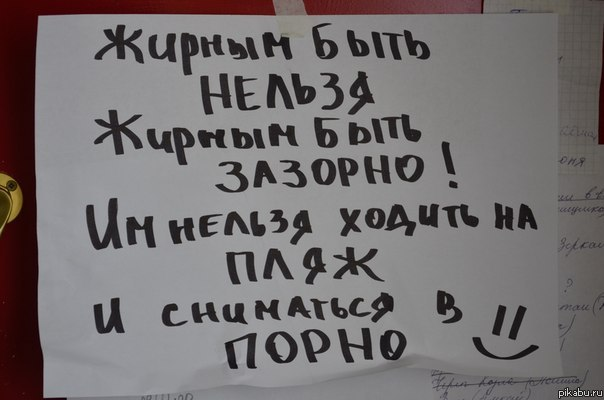 Жирным быть
нельзя
Жирным быть
зазорно!
Им нельзя ходить на
пляж
и сниматься в
порно
pikabu.ru